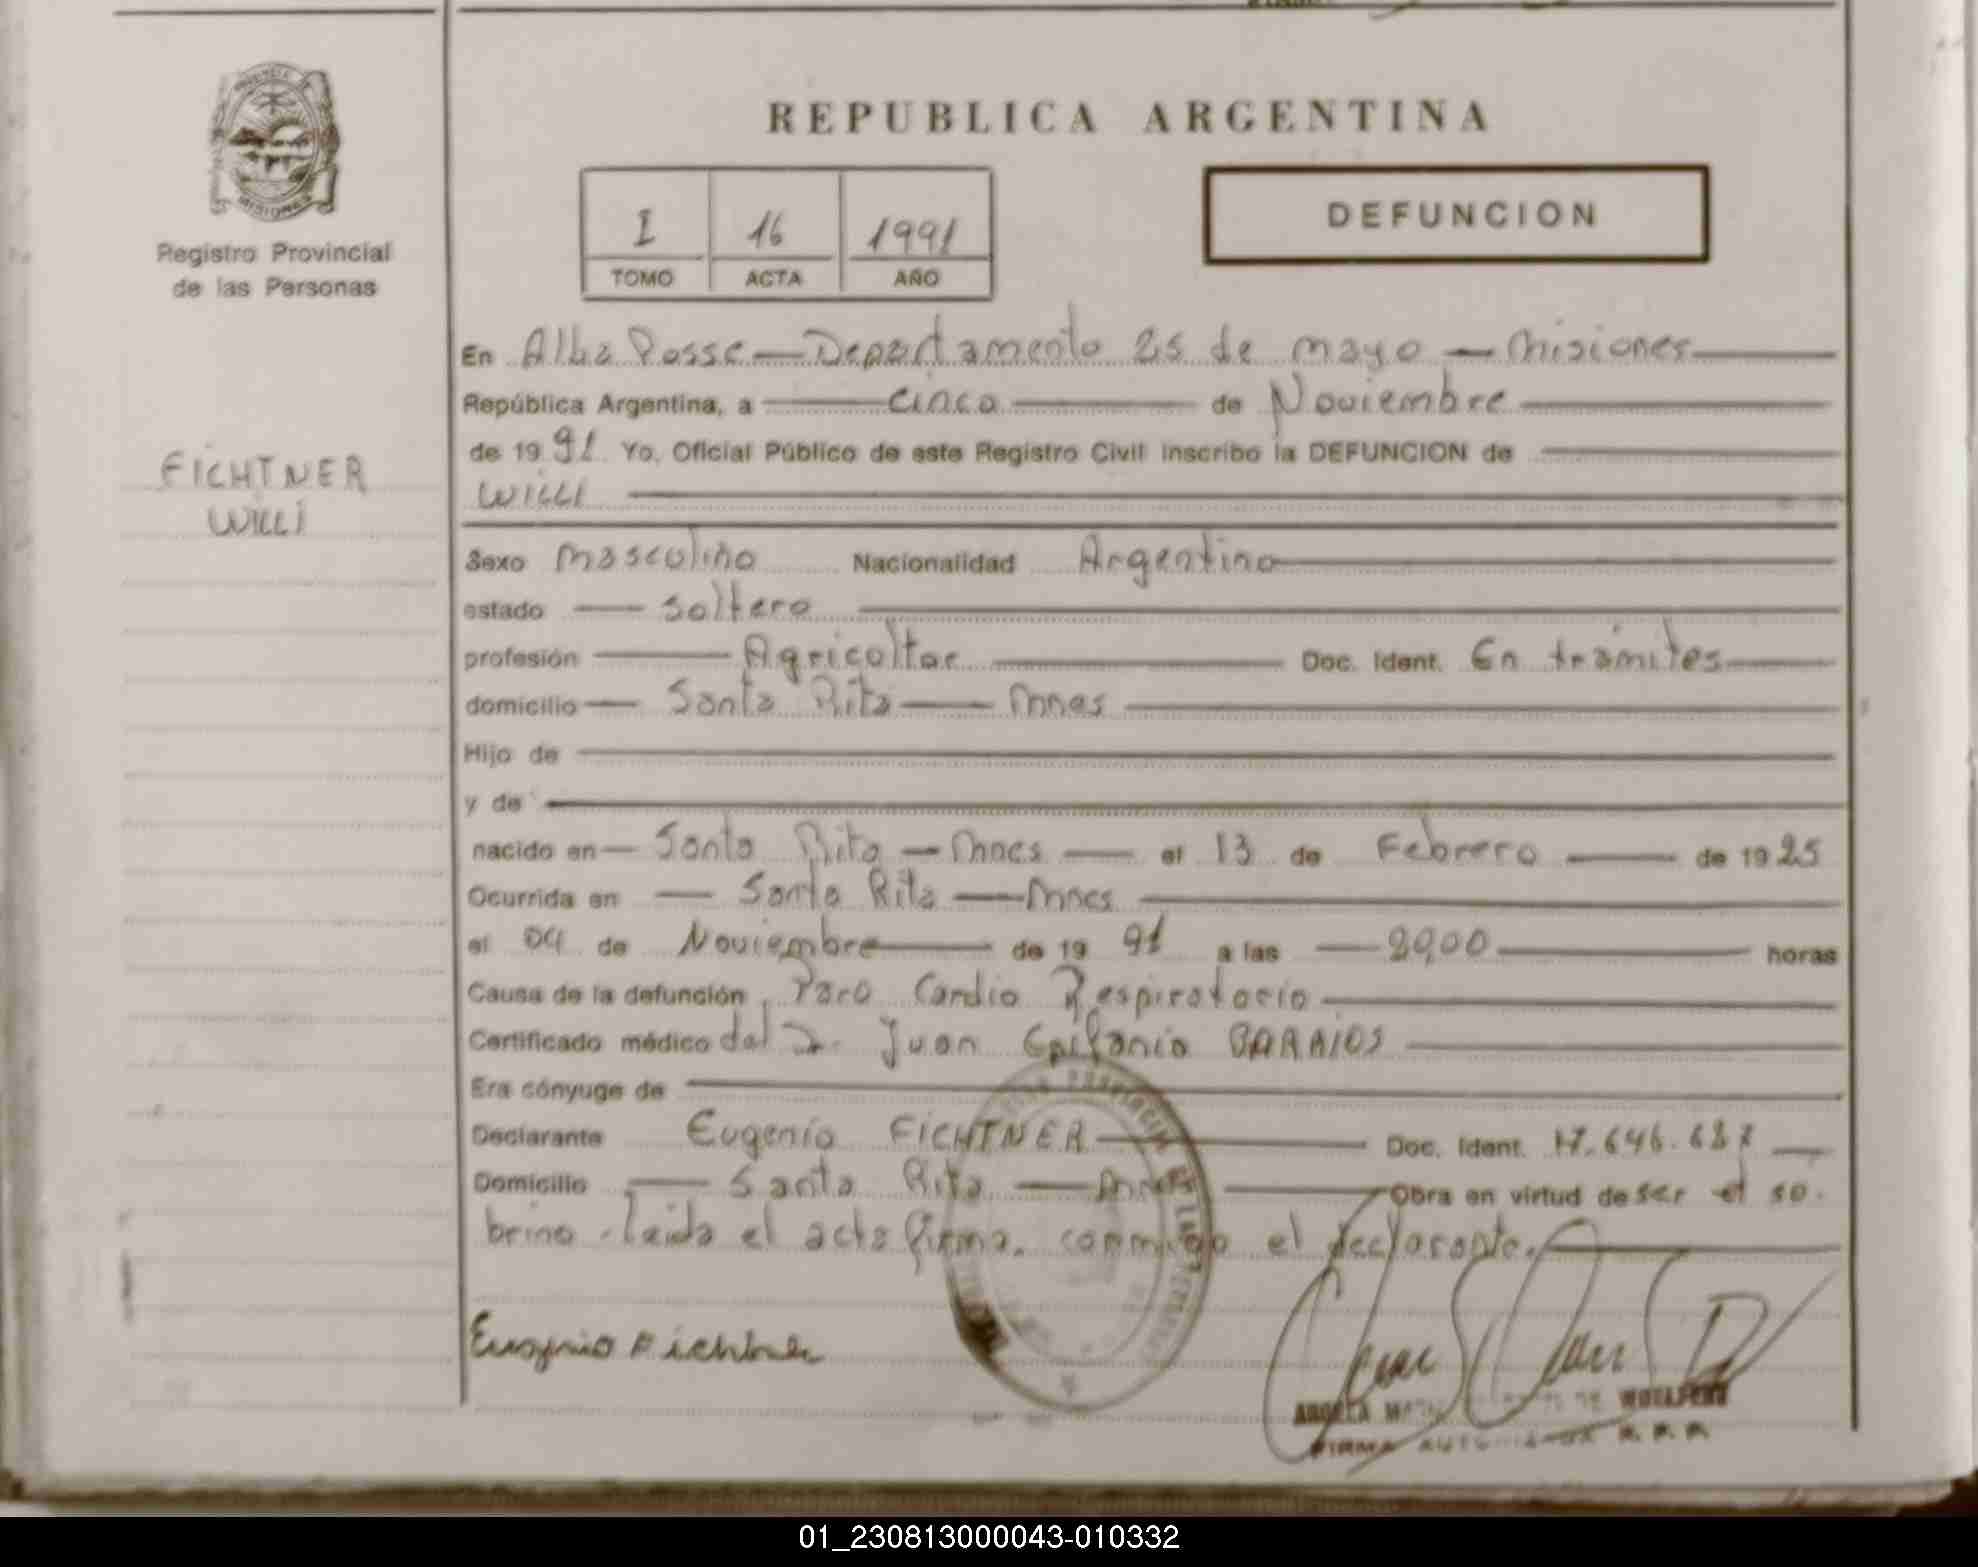 REPUBLICA ARGENTINA
MISIONES
Registro Provincial
de las Personas
I 16 1991
TOMO ACTA AÑO
DEFUNCION
FICHTNER
WILLI
En Alba Posse — Departamento 25 de mayo — Misiones
República Argentina, a cinco de Noviembre
de 1991 Yo, Oficial Público de este Registro Civil inscribo la DEFUNCION de
WILLI
Sexo masculino Nacionalidad Argentino
estado — soltero
profesión — Agricoltor Doc. Ident. En trámites
domicilio — Santa Rita — Mnes
Hijo de
y de
nacido en — Santa Rita — Mnes — el 13 de Febrero de 1925
Ocurrida en — Santa Rita — Mnes
el 04 de Noviembre de 1991 a las horas
Causa de la defunción Paro Cardio Respiratorio
Certificado médico del Dr. Juan Epifanio BARRIOS
Era cónyuge de
Declarante Eugenio FICHTNER Doc. Ident. 17.646.687
Domicilio — Santa Rita — Mnes Obra en virtud de ser el so.
brino - Leida el acta firma. conmigo el declarante.
Eugenio Fichtner
ANGELA DE
FIRMA AUTORIZADA R. P. P.
01_230813000043-010332